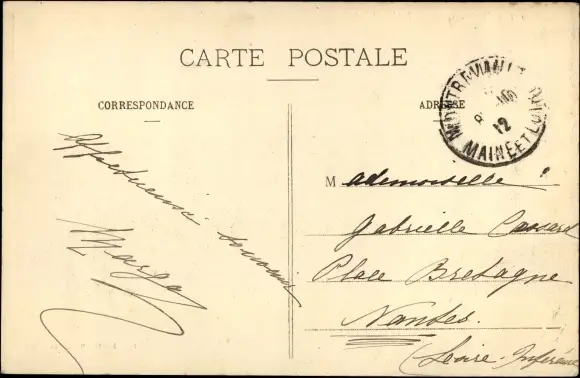 CARTE POSTALE
CORRESPONDANCE
ADRESSE
MAINE ET LOIRE
12
Affectueux souvenir
M ademoiselle
Gabrielle Cassard
Place Bretagne
Nantes.
(Loire-Inférieure